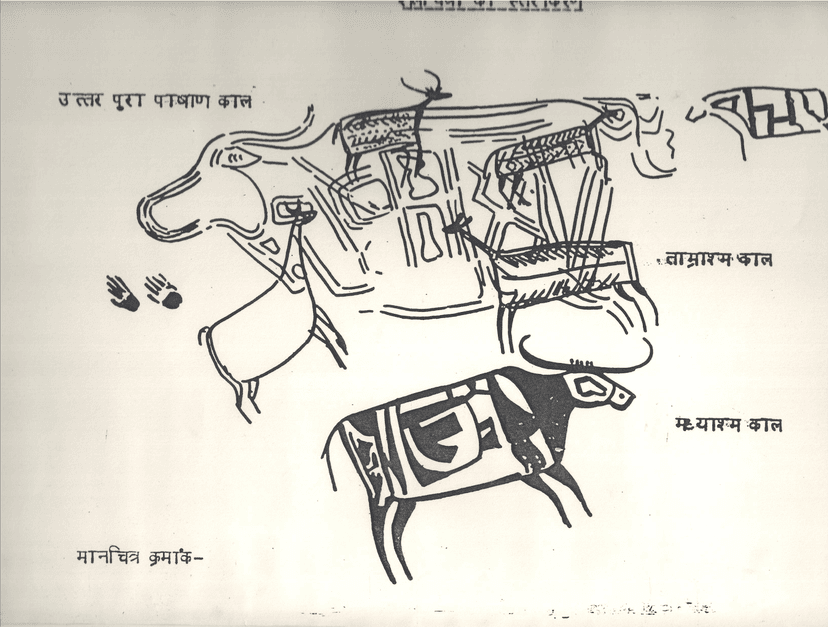 उत्तर पुरा पाषाण काल
ताम्राश्म काल
मध्याश्म काल
मानचित्र क्रमांक-